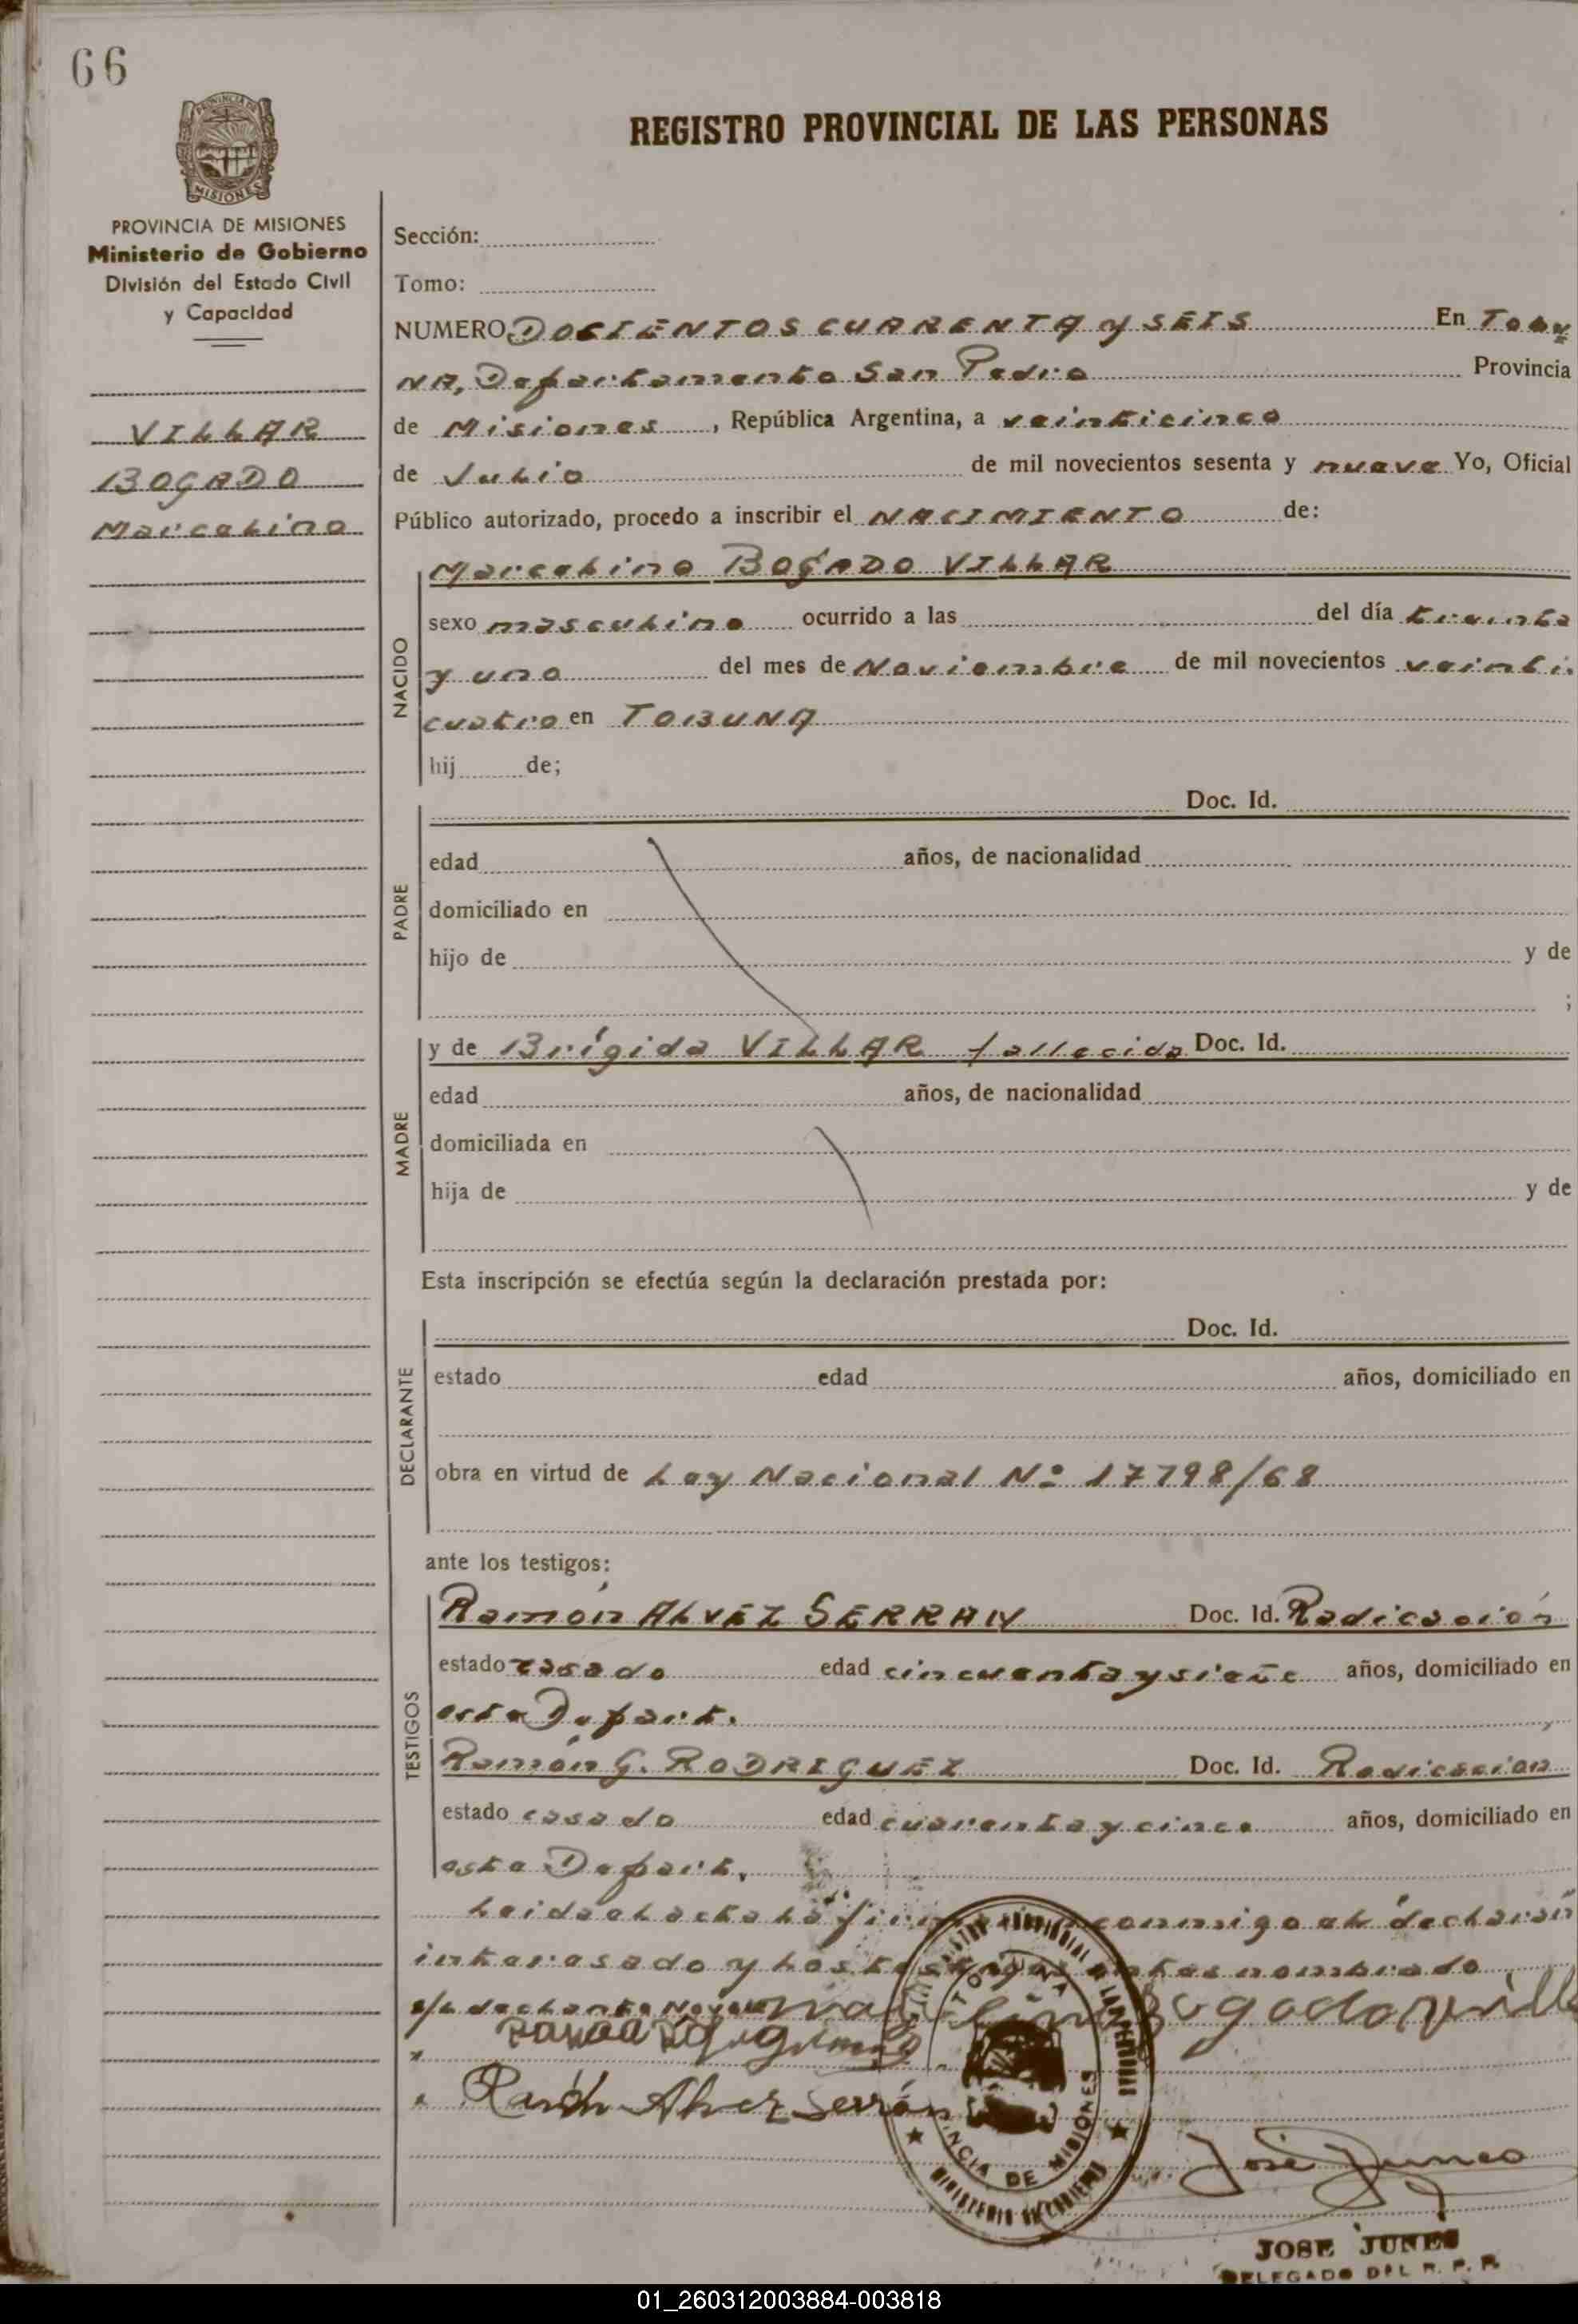 66
PROVINCIA DE
MISIONES
PROVINCIA DE MISIONES
Ministerio de Gobierno
División del Estado Civil
y Capacidad
VILLAR
BOGADO
Marcelino
REGISTRO PROVINCIAL DE LAS PERSONAS
Sección:
Tomo:
NUMERO DOCIENTOS CUARENTA y SEIS En Tobu
NA, Departamento San Pedro Provincia
de Misiones, República Argentina, a veinticinco
de Julio de mil novecientos sesenta y nueve Yo, Oficial
Público autorizado, procedo a inscribir el NACIMIENTO de:
NACIDO
Marcelino BOGADO VILLAR
sexo masculino ocurrido a las del día treinta
y uno del mes de Noviembre de mil novecientos veinti
cuatro en TOBUNA
hij de;
PADRE
Doc. Id.
edad años, de nacionalidad
domiciliado en
hijo de y de
;
MADRE
y de Brígida VILLAR fallecida Doc. Id.
edad años, de nacionalidad
domiciliada en
hija de y de
Esta inscripción se efectúa según la declaración prestada por:
DECLARANTE
Doc. Id.
estado edad años, domiciliado en
obra en virtud de Ley Nacional Nº 17798/68
ante los testigos:
TESTIGOS
Ramón ALVEZ SERRAN Doc. Id. Radicación
estado casado edad cincuenta y siete años, domiciliado en
este Depart.
Ramón G. RODRIGUEZ Doc. Id. Radicacion
estado casado edad cuarenta y cinco años, domiciliado en
este Depart.
Leida el acta la conmigo el declarán
interesado y los antes nombrado
Bogado Villa
Ramón Alvez Serrán
TOBUNA
PROVINCIA DE MISIONES
MINISTERIO DE GOBIERNO
José Junes
JOSE JUNES
DELEGADO DEL R. P. P.
01_260312003884-003818